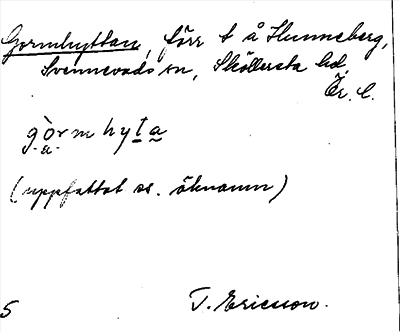 Gormhyttan, förr t å Hunneberg,
Svennevads sn, Sköllersta hd,
Ör. l.
gòrmhyta
-a-
(uppfattat ss. öknamn)
T. Ericsson.
5